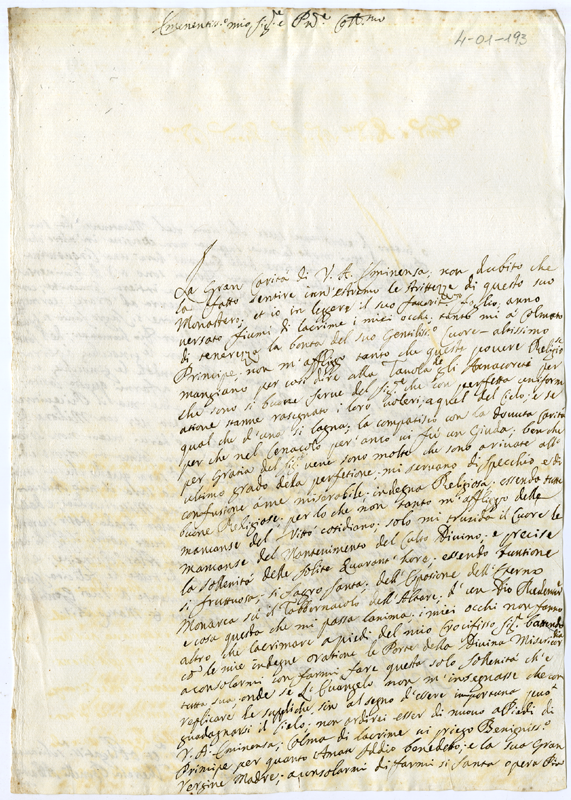 Eminentis.mo mio Sig.re e Pn͠e Col.mo
4-01-193
La Gran Carità di V. A. Eminensa, non dubito che
la fatto sentire inn'estremo le strittezze di questo suo
Monastero, et io in leggere il suo foglio, anno
versato fiumi di lacrime i miei occhi, tanto mi à Colmato
di tenerezza la bontà del suo Gentilis.o Cuore - altissimo
Principe, non m'affligo tanto che queste povere Religiose
mangiano per così dire alla Tavola degli Anacoreti per
che sono sì buone serve del Sig.re che con perfetta uniform
atione stanne rasegnate i loro voleri, a quel del Cielo, e se
qual che d'una si lagna, la compatisco con la dovuta Carità
per che nel Cenacolo per anco vi fù un Giuda, ben che
per Gratia del Sig.re vene sono molte che sono arrivate all'
ultimo grado dela perfetione, mi servano di specchio e di
confusione à me miserabile, indegna Religiosa, essendo tante
buone Religiose, per lo che non tanto m'affligo delle
mancanse del Vitto cotidiano, solo mi trucida il Cuore le
mancanse del Mantenimento del Culto Divino, e precise
la sollenità delle solite Quarant'hore, essendo funtione
sì fruttuosa, sì sagro santa, dell'Espotione dell'Eterno
Monarca sù il tabernacolo dell'Altare, d'un Dio Rademtor
e cosa questa che mi passa l'anima, i miei occhi non fanno
altro che lacrimare a piedi del mio Crocifisso Sig.re battendo
cō le mie indegne oratione le Porte della Divina Misericordia
a consolarmi con farmi fare questa solo sollenità ch'è
tutta sua, onde se L'Evangelo non m'insegnase che con
replicare le suppliche, sin al segno d'essere importuna puol
guadagnarsi il Cielo, non ardirei esser di nuovo a Piedi di
V. A. Eminensa, Colma di lacrime vi priego Benigniss.o
Principe per quanto Amate Iddio benedetto, e la sua Gran
Vergine Madre, a consolarmi di farmi sì Santa opera Pia